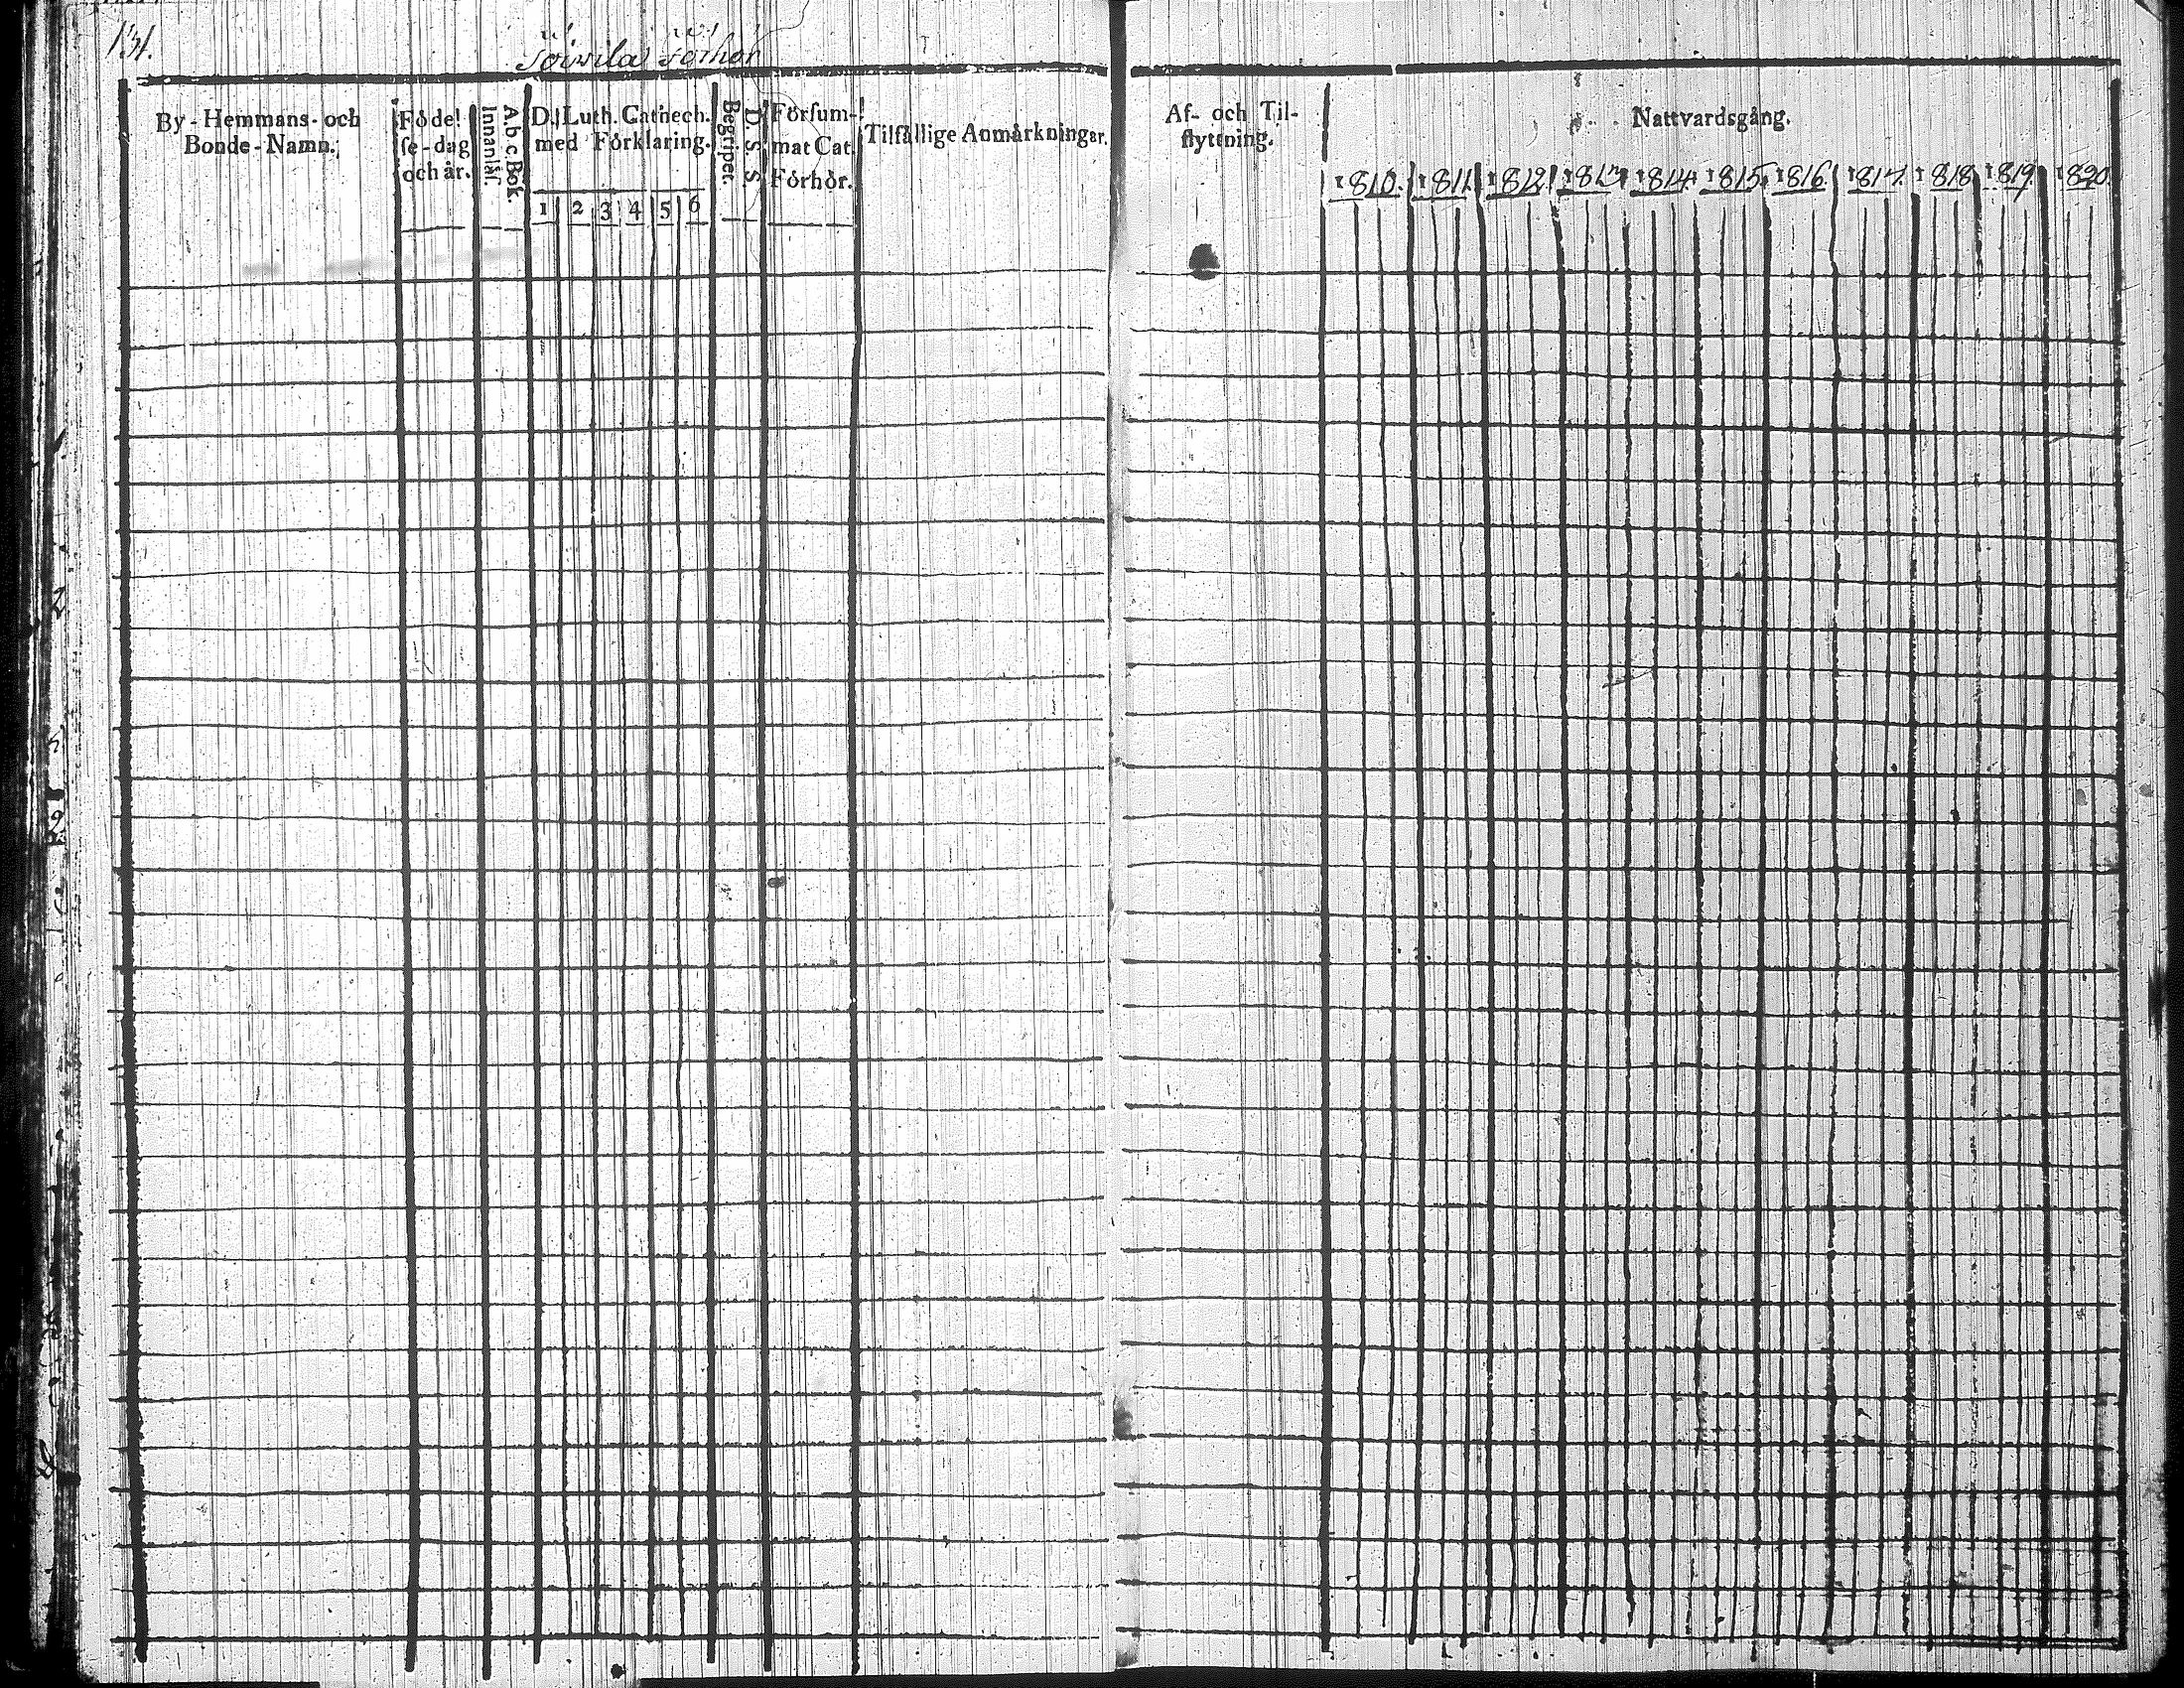 131.
By-Hemmans- och
Bonde-Namn.
Födel-
se-dag
och år.
A.b.c. Bok.
Innanläs.
D. Luth. Cathech.
med Förklaring.
1 2 3 4 5 6
D. S. S.
Begripet.
Försum-
mat Cat.
Förhör.
Tilfällige Anmärkningar.
Af- och Til-
flyttning.
Nattvardsgång.
1810. 1811. 1812. 1813. 1814. 1815. 1816. 1817. 1818. 1819. 1820.